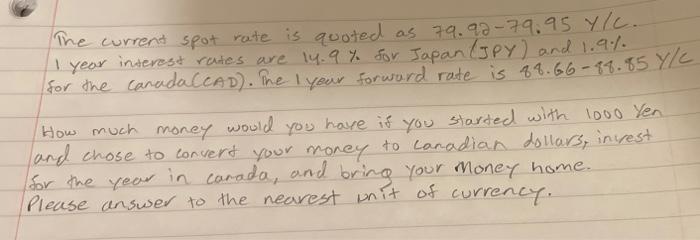 The current spot rate is quoted as 79.92-79.95 Y/C.
1 year interest rates are 14.9 % for Japan (JPY) and 1.9%
for the Canada (CAD). The 1 year forward rate is 88.66-88.85 Y/C
How much money would you have if you started with 1000 Yen
and chose to convert your money to Canadian dollars, invest
for the year in Canada, and bring your money home.
Please answer to the nearest unit of currency.